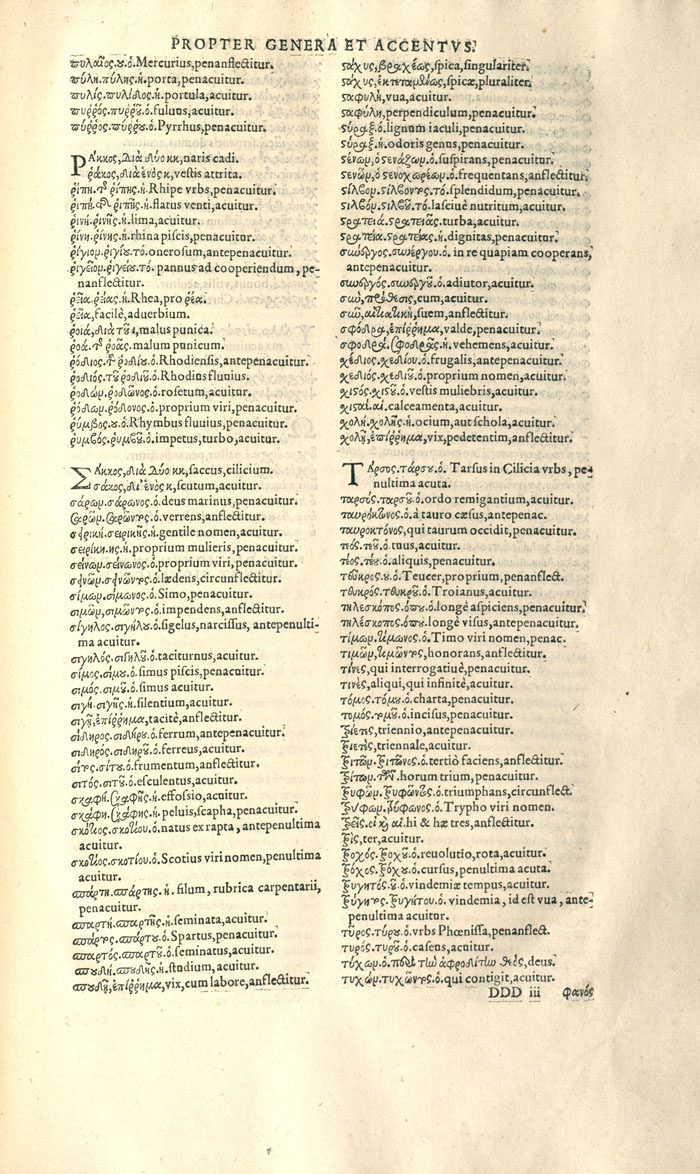 PROPTER GENERA ET ACCENTVS.
πυλαῖος.ȣ.ὁ.Mercurius,penanflectitur.
πύλη.πύλης.ἡ.porta,penacuitur.
πυλίς.πυλίδος.ἡ.portula,acuitur.
πυῤῥός.πυῤῥȣ̃.ὁ.fuluus,acuitur.
πύῤῥος.πύῤῥȣ.ὁ.Pyrrhus,penacuitur.
Ῥάκκος,διὰ δύο κκ,naris cadi.
ῥάκος,διὰ ἑνὸς κ,vestis attrita.
ῥίπη. ῥίπης.ἡ.Rhipe vrbs,penacuitur.
ῥιπή. ῥιπῆς.ἡ.flatus venti,acuitur.
ῥινή.ῥινῆς.ἡ.lima,acuitur.
ῥίνη.ῥίνης.ἡ.rhina piscis,penacuitur.
ῥίγιον.ῥιγίȣ.τό.onerosum,antepenacuitur.
ῥιγεῖον.ῥιγείȣ.τό.pannus ad cooperiendum, pe-
nanflectitur.
ῥεῖα.ῥείας.ἡ.Rhea,pro ῥέα.
ῥεῖα,facilè,aduerbium.
ῥοιά,διὰ τȣ̃ ι,malus punica.
ῥοά. ῥοᾶς.malum punicum.
ῥόδιος. ῥοδίȣ.ὁ.Rhodiensis,antepenacuitur.
ῥοδιός.τȣ̃ ῥοδιȣ̃.ὁ.Rhodius fluuius.
ῥοδών.ῥοδῶνος.ὁ.rosetum,acuitur.
ῥόδων.ῥόδονος.ὁ.proprium viri,penacuitur.
ῥύμβος.ȣ.ὁ.Rhymbus fluuius,penacuitur.
ῥυμβός.ῥυμβȣ̃.ὁ.impetus,turbo,acuitur.
Σάκκος,διὰ δύο κκ,saccus,cilicium.
σάκος,δι' ἑνὸς κ,scutum,acuitur.
σάρων.σάρωνος.ὁ.deus marinus,penacuitur.
σαρῶν.σαρῶντος.ὁ.verrens,anflectitur.
σειρικὴ.σειρικῆς.ἡ.gentile nomen,acuitur.
σειρίκη.ης.ἡ.proprium mulieris,penacuitur.
σείνων.σείνωνος.ὁ.proprium viri,penacuitur.
σεινῶν.σεινῶντος.ὁ.lædens,circunflectitur.
σίμων.σίμωνος.ὁ.Simo,penacuitur.
σιμῶν,σιμῶντος.ὁ.impendens,anflectitur.
σίγηλος.σιγήλȣ.ὁ.sigelus,narcissus, antepenulti-
ma acuitur.
σιγηλός.σιγηλȣ̃.ὁ.taciturnus,acuitur.
σίμος.σίμȣ.ὁ.simus piscis,penacuitur.
σιμός.σιμȣ̃.ὁ.simus acuitur.
σιγή.σιγῆς.ἡ.silentium,acuitur.
σιγῇ,ἐπίῤῥημα,tacitè,anflectitur.
σίδηρος.σιδήρȣ.ὁ.ferrum,antepenacuitur.
σιδηρός.σιδηρȣ̃.ὁ.ferreus,acuitur.
σῖτος.σίτȣ.ὁ.frumentum,anflectitur.
σιτός.σιτȣ̃.ὁ.esculentus,acuitur.
σκαφή.σκαφῆς.ἡ.effossio,acuitur.
σκάφη.σκάφης.ἡ.peluis,scapha,penacuitur.
σκότιος.σκοτίȣ.ὁ.natus ex rapta, antepenultima
acuitur.
σκοτίος.σκοτίου.ὁ.Scotius viri nomen,penultima
acuitur.
σπάρτη.σπάρτης.ἡ. filum, rubrica carpentarii,
penacuitur.
σπαρτή.σπαρτῆς.ἡ.seminata,acuitur.
σπάρτος.σπάρτȣ.ὁ.Spartus,penacuitur.
σπαρτός.σπαρτȣ̃.ὁ.seminatus,acuitur.
σπουδή.σπουδῆς.ἡ.studium,acuitur.
σπουδῇ,ἐπίῤῥημα,vix,cum labore,anflectitur.
στάχυς,βραχέως,spica,singulariter.
στάχυς,ἐκτεταμένως,spicæ,pluraliter.
σταφυλὴ,vua,acuitur.
σταφύλη,perpendiculum,penacuitur.
σύραξ.ὁ.lignum iaculi,penacuitur.
σύραξ.ἡ.odoris genus,penacuitur.
στένων,ὁ στενάζων.ὁ.suspirans,penacuitur.
στενῶν,ὁ στενοχωρέων.ὁ.frequentans,anflectitur.
στίλβον.στίλβοντος.τό.splendidum,penacuitur.
στιλβόν.στιλβȣ̃.τό.lasciuè nutritum,acuitur.
στρατειά.στρατειᾶς.turba,acuitur.
στρατεία.στρατείας.ἡ.dignitas,penacuitur.
σύνεργος.συνέργου.ὁ. in re quapiam cooperans,
antepenacuitur.
συνεργός.συνεργȣ̃.ὁ.adiutor,acuitur.
σὺν,πρόθεσις,cum,acuitur.
σῦν,αἰτιατικὴ,suem,anflectitur.
σφόδρα,ἐπίῤῥημα,valde,penacuitur.
σφοδρά.σφοδρᾶς.ἡ.vehemens,acuitur.
σχέδιος.σχεδίου.ὁ.frugalis,antepenacuitur.
σχεδιός.σχεδιȣ̃.ὁ.proprium nomen,acuitur.
σχιστός.σχιστȣ̃.ὁ.vestis muliebris,acuitur.
σχισταί.αἱ.calceamenta,acuitur.
σχολή.σχολῆς.ἡ.ocium,aut schola,acuitur.
σχολῇ,ἐπίῤῥημα,vix,pedetentim,anflectitur.
Τάρσος.τάρσȣ.ὁ. Tarsus in Cilicia vrbs, pe-
nultima acuta.
ταρσός.ταρσȣ̃.ὁ.ordo remigantium,acuitur.
ταυρόκτονος.ὁ.à tauro cæsus,antepenac.
ταυροκτόνος,qui taurum occidit,penacuitur.
τεός.τεȣ̃.ὁ.tuus,acuitur.
τέος.τέȣ.ὁ.aliquis,penacuitur.
τεῦκρος.ȣ.ὁ.Teucer,proprium,penanflect.
τευκρός.τευκρȣ̃.ὁ.Troianus,acuitur.
τηλεσκόπος.ὁ.longè aspiciens,penacuitur.
τηλέσκοπος.ὁ.longè visus,antepenacuitur.
τίμων.τίμωνος.ὁ.Timo viri nomen,penac.
τιμῶν,τιμῶντος,honorans,anflectitur.
τίνες,qui interrogatiuè,penacuitur.
τινὲς,aliqui,qui infinitè,acuitur.
τόμος.τόμȣ.ὁ.charta,penacuitur.
τομός.τομȣ̃.ὁ.incisus,penacuitur.
τρίετες,triennio,antepenacuitur.
τριετὲς,triennale,acuitur.
τριτῶν.τριτῶνος.ὁ.tertiò faciens,anflectitur.
τρίτων. horum trium,penacuitur.
τρυφῶν.τρυφῶντος.ὁ.triumphans,circunflect.
τρύφων.τρύφωνος.ὁ.Trypho viri nomen.
τρεῖς.οἱ καὶ αἱ.hi & hæ tres,anflectitur.
τρὶς,ter,acuitur.
τροχός.τροχȣ̃.ὁ.reuolutio,rota,acuitur.
τρόχος.τρόχȣ.ὁ.cursus,penultima acuta.
τρυγητός.ȣ̃.ὁ.vindemiæ tempus,acuitur.
τρύγητος.τρυγήτου.ὁ.vindemia, id est vua, ante-
penultima acuitur.
τῦρος.τύρȣ.ὁ.vrbs Phœnissa,penanflect.
τυρός.τυρȣ̃.ὁ.caseus,acuitur.
τύχων.ὁ περὶ τὴν ἀφροδίτην θεὸς,deus.
τυχών.τυχῶντος.ὁ.qui contigit,acuitur.
DDD iii φανός